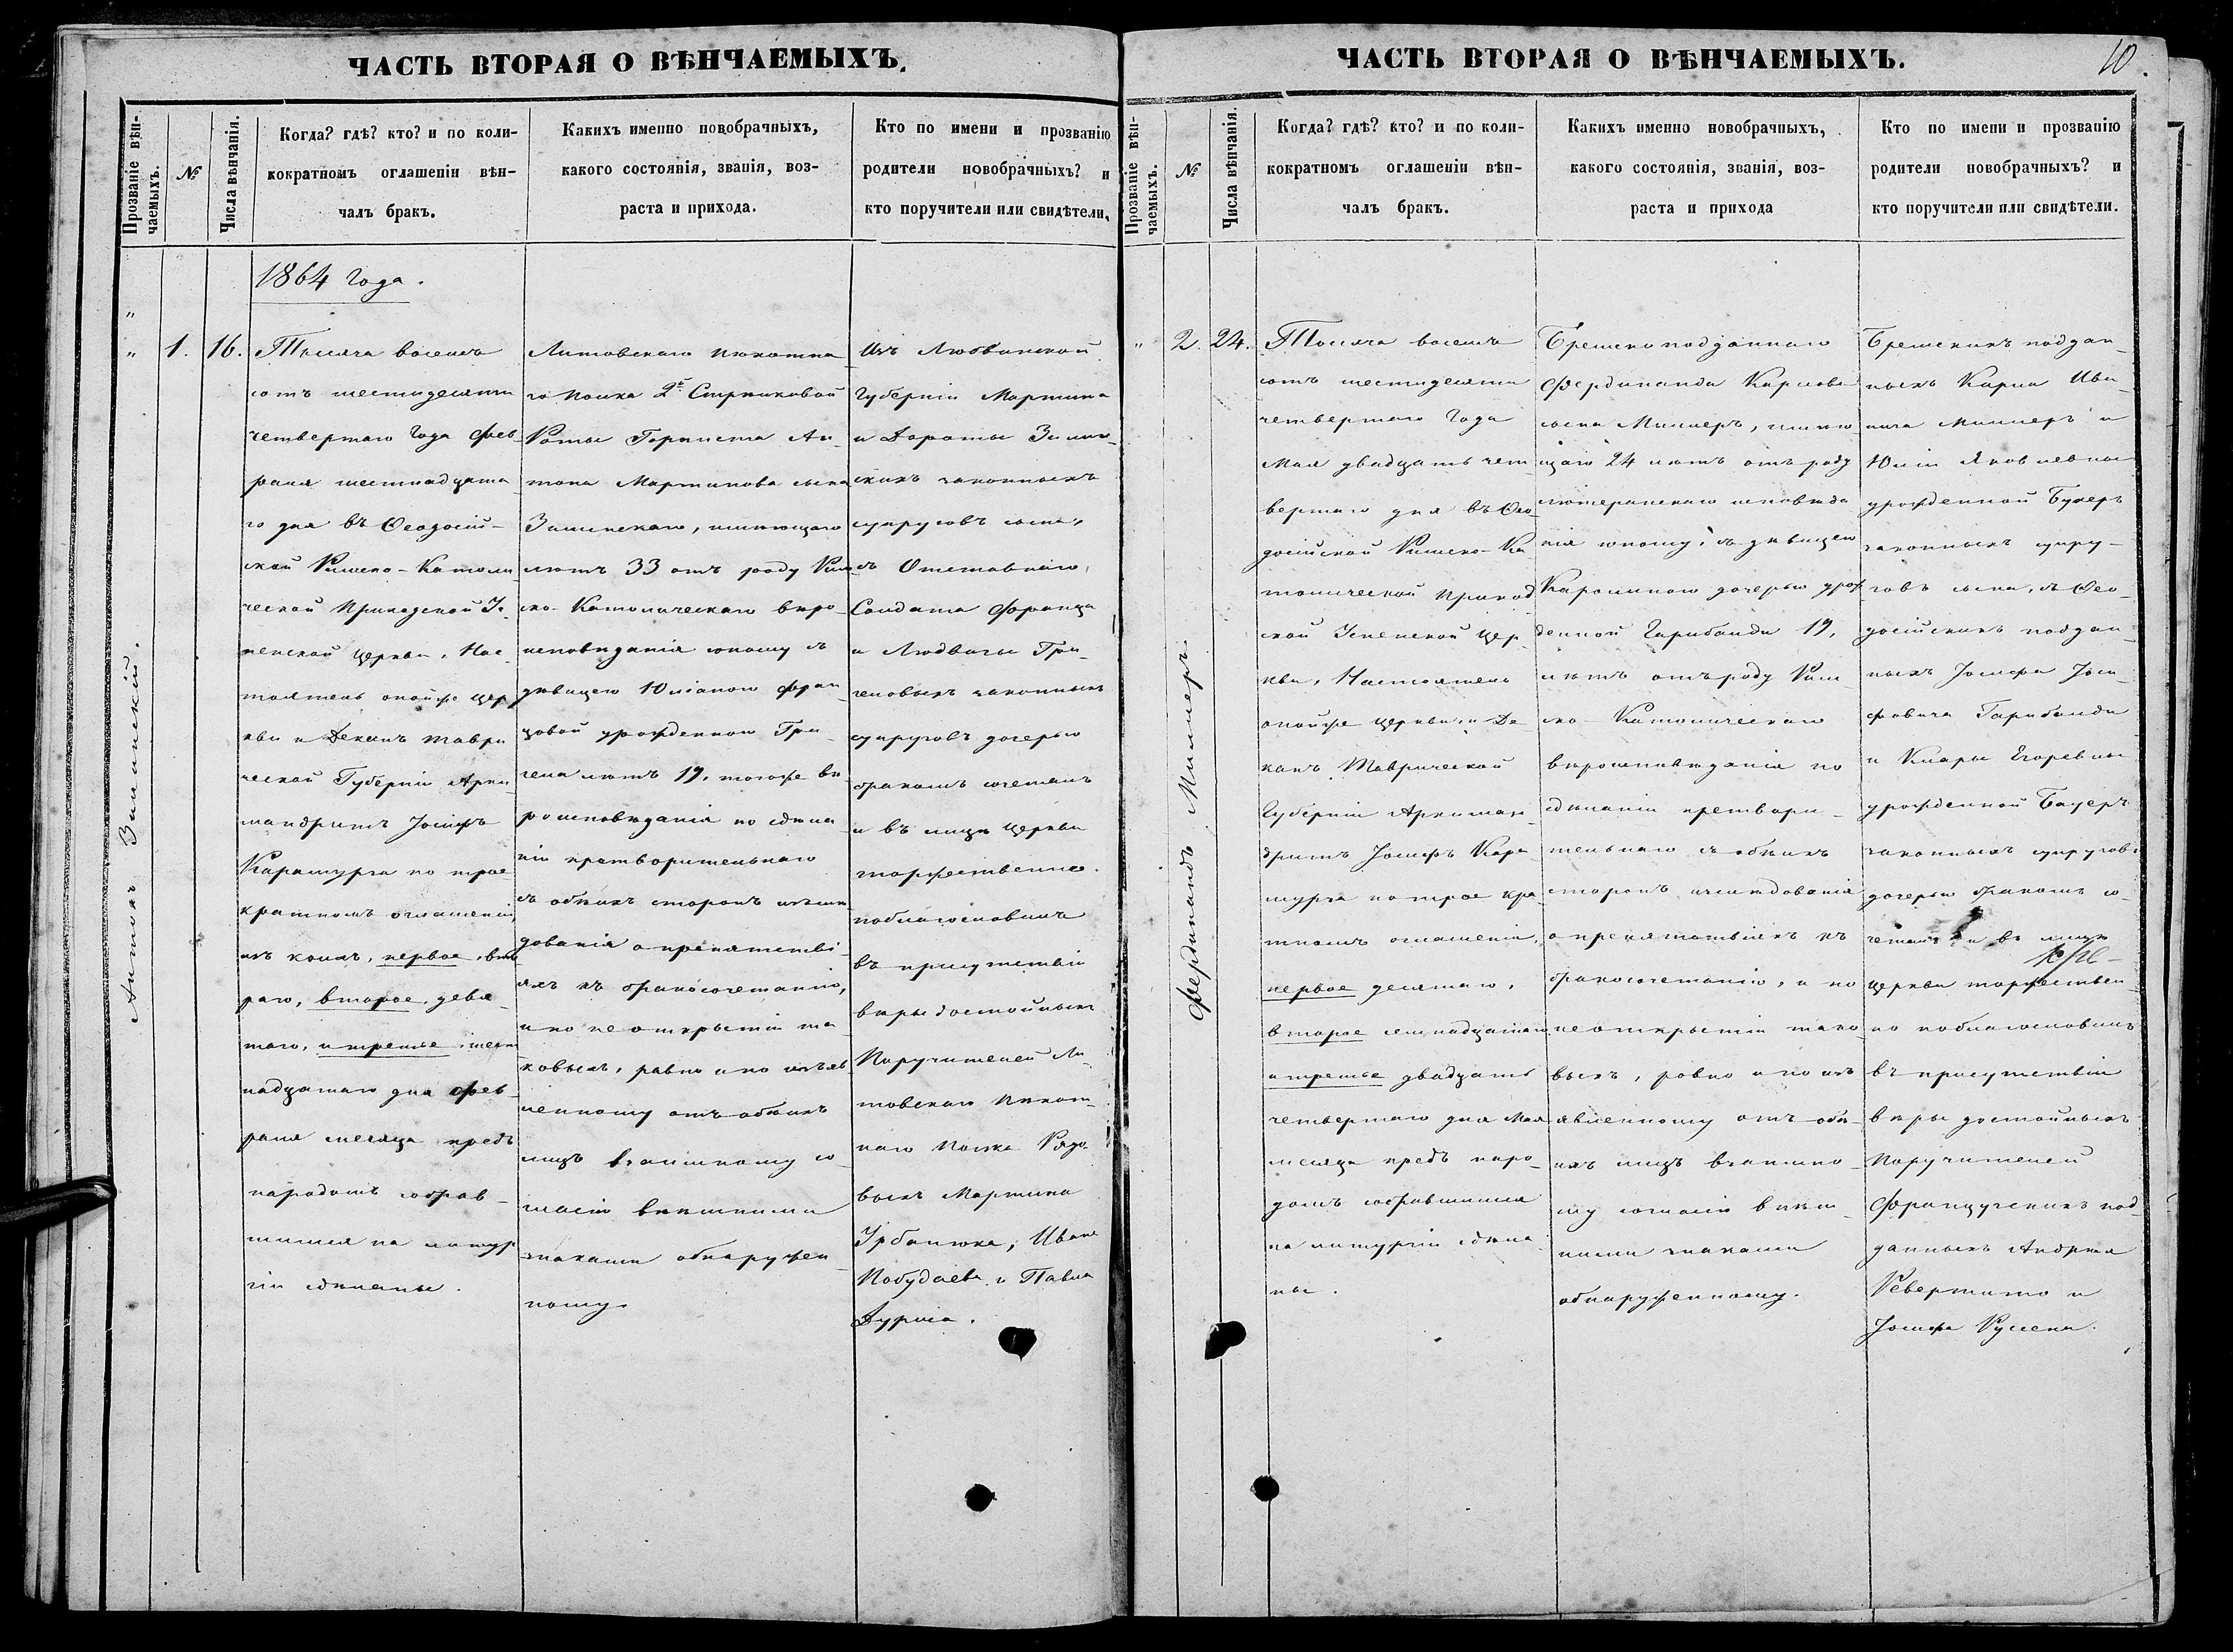 ЧАСТЬ ВТОРАЯ О ВѢНЧАЕМЫХЪ.
Прозваніе вѣн-
чаемыхъ.
№
Числа вѣнчанія.
Когда? гдѣ? кто? и по коли-
кократномъ оглашеніи вѣн-
чалъ бракъ.
Какихъ именно новобрачныхъ,
какого состоянія, званія, воз-
раста и прихода.
Кто по имени и прозванію
родители новобрачныхъ? и
кто поручители или свидѣтели.
Антонъ Зилинскій.
1.
16.
1864 года.
Тысяча восемь
сотъ шестидесять
четвертаго Года Фев-
раля шестнадцата-
го дня въ Ѳеодосій-
ской Римско-Католи
ческой Приходской Ус-
пенской Церкви, Нас-
тоятель онойже Цер
кви и Деканъ Таври
ческой Губерніи Архи
мандритъ Іосифъ
Карашурга по трое
кратномъ оглашеніи,
изъ коихъ, первое, вто
раго, второе девя-
таго, и третье шест
надцатаго дня Фев-
раля месяца предъ
народомъ собрав-
шимся на литур
гіи сдѣланы.
Литовскаго пѣхотна
го полка 2й Стрѣлковой
Роты Горниста Ан-
тона Мартинова сына
Зилинскаго, имѣющаго
лѣтъ 33 отъ роду Рим
ско-Католическаго вѣро-
исповѣданія юношу съ
дѣвицею Юліаною Фран
цовой урожденною Гри-
лѣтъ 19, тогоже вѣ
роисповѣданія по сдѣла
ніи претворительнаго
съ обѣихъ сторонъ изслѣ
дованія о препятстві-
яхъ къ бракосочетанію,
и по не открытіи та
ковыхъ, равно и по изъяв
ленному отъ обѣихъ
лицъ взаимному со-
гласію внѣшними
знаками обнаружен-
ному.
Изъ Любвинской
Губерніи Мартина
и Дороты Зилин-
скихъ законныхъ
супруговъ сына,
съ Отставнаго
Солдата Франца
и Людвиги Гри-
законныхъ
супруговъ дочерью
бракомъ сочеталъ
и въ лицѣ Церкви
торжественно
поблагословилъ
въ присутствіи
вѣры достойныхъ
Поручителей Ли-
товскаго Пѣхот-
наго Полка Рядо
выхъ Мартина
Урбанюка, Ивана
Побудаева и Павла
ЧАСТЬ ВТОРАЯ О ВѢНЧАЕМЫХЪ.
10.
Прозваніе вѣн-
чаемыхъ.
№
Числа вѣнчанія.
Когда? гдѣ? кто? и по коли-
кократномъ оглашеніи вѣн-
чалъ бракъ.
Какихъ именно новобрачныхъ,
какого состоянія, званія, воз-
раста и прихода
Кто по имени и прозванію
родители новобрачныхъ? и
кто поручители или свидѣтели.
Фердинандъ Миллеръ.
2.
24.
Тысяча восемь
сотъ шестидесяти
четвертаго Года
Мая двадцать чет
вертаго дня въ Ѳео-
досійской Римско-Ка
толической Приход
ской Успенской Цер-
кви, Настоятель
онойже Церкви и Де
канъ Таврической
Губерніи Архиман-
дритъ Іосифъ Кара-
шурга по трое кра-
тномъ оглашеніи,
первое десятаго,
второе семнадцатаго
и третье двадцать
четвертаго дня Мая
месяца предъ наро-
домъ собравшимся
на литургіи сдѣла-
ны.
подданнаго
Фердинанда Карлова
сына Миллеръ, имѣю-
щаго 24 лѣтъ отъ роду
лютеранскаго исповѣда
нія юношу, съ дѣвицею
Каролиною дочерью урож
денной Гарибалди 19,
лѣтъ отъ роду Рим-
ско-Католическаго
вѣроисповѣданія по
сдѣланіи претвори-
тельнаго съ обѣихъ
сторонъ изслѣдованія
о препятствіяхъ къ
бракосочетанію, и по
не открытіи тако-
выхъ, ровно и по изъ
явленному отъ обѣ-
ихъ лицъ взаимно-
му согласію внѣш-
ними знаками
обнаруженному.
поддан-
ныхъ Карла Ива-
нича Миллеръ и
Юліи Яковлевны
урожденной Бухеръ
законныхъ супру-
говъ сына, съ Ѳео-
досійскихъ поддан-
ныхъ Іосифа Іоси-
фовича Гарибалди
и Клары Егоревны
урожденной Бауеръ
законныхъ супруговъ
дочерью бракомъ со-
четалъ и въ лицѣ
Церкви торжествен-
но поблагословилъ
въ присутствіи
вѣры достойныхъ
Поручителей
Французскихъ под-
данныхъ Андрея
и
Іосифа